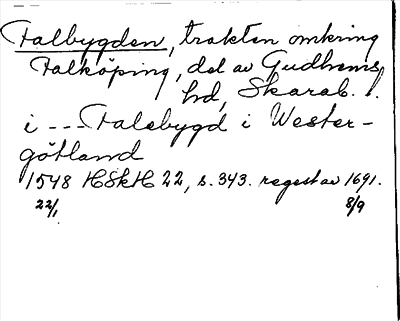 Falbygden, trakten omkring
Falköping, del av Gudhems
hd, Skarab. l.
i --- Falebygd i Wester-
götland
1548 HSkH 22, s. 343. regest av 1691.
22/1 8/9